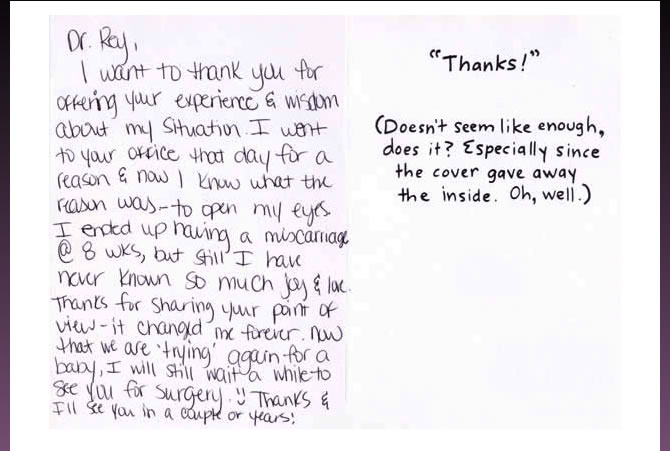 Dr. Rey,
I want to thank you for
offering your experience & wisdom
about my situation. I went
to your office that day for a
reason & now I know what the
reason was - to open my eyes.
I ended up having a miscarriage
@ 8 wks, but still I have
never known so much joy & love.
Thanks for sharing your point of
view - it changed me forever. Now
that we are 'trying' again for a
baby, I will still wait a while to
see you for surgery. Thanks &
I'll see you in a couple or years!
"Thanks!"
(Doesn't seem like enough,
does it? Especially since
the cover gave away
the inside. Oh, well.)